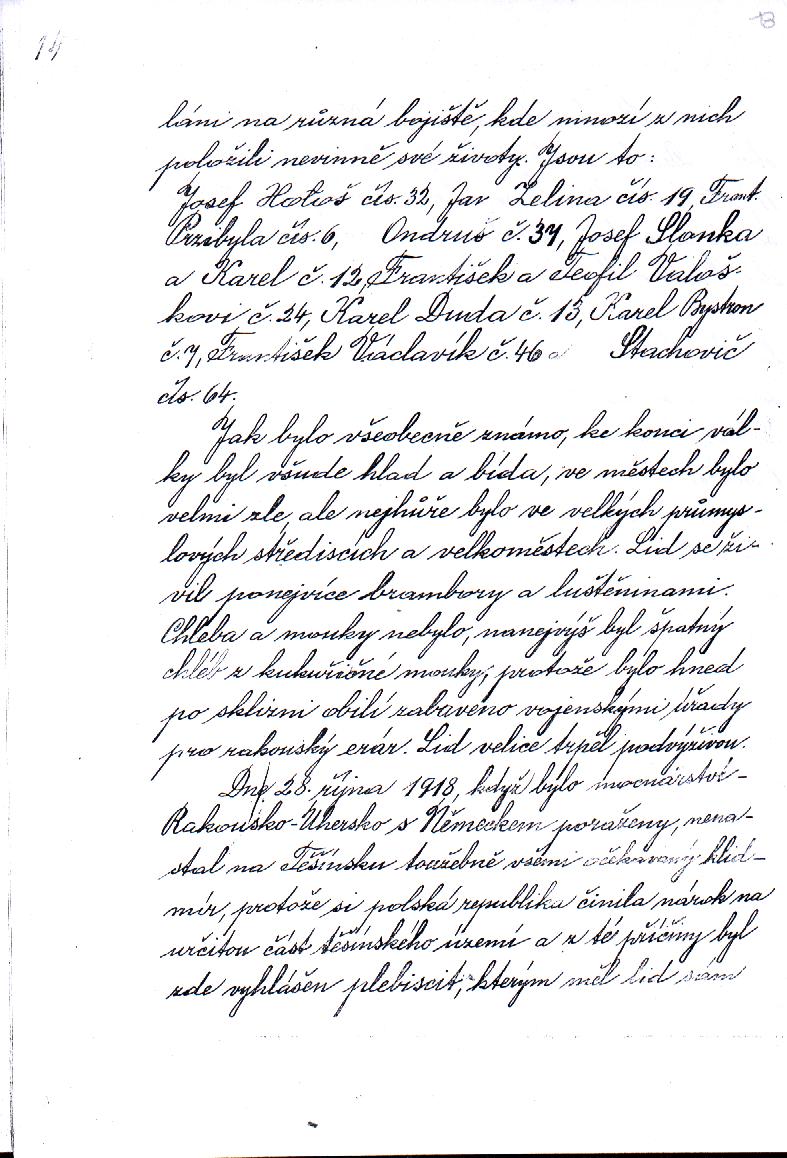 14
13
láni na různá bojiště, kde mnozí z nich
položili nevinně své životy. Jsou to:
Josef Hotoš čís. 32, Jan Zelina čís. 19, Frant.
Przibyla čís. 6, Ondruš č. 37, Josef Slonka
a Karel č. 12, František a Teofil Valoš-
kovi č. 24, Karel Duda č. 13, Karel Bystron
č. 7, František Václavík č. 46 a Stachovič
čís. 64.
Jak bylo všeobecně známo, ke konci vál-
ky byl všude hlad a bída, ve městech bylo
velmi zle, ale nejhůře bylo ve velkých průmys-
lových střediscích a velkoměstech. Lid se ži-
vil ponejvíce brambory a luštěninami.
Chleba a mouky nebylo, nanejvýš byl špatný
chléb z kukuřičné mouky, protože bylo hned
po sklizni obilí zabaveno vojenskými úřady
pro rakouský erár. Lid velice trpěl podvýživou.
Dne 28. října 1918, když bylo mocnářství
Rakousko-Uhersko s Německem poraženy, nena-
stal na Těšínsku toužebně všemi očekávaný klid-
mír, protože si polská republika činila nárok na
určitou část těšínského území a z té příčiny byl
zde vyhlášen plebiscit, kterým měl lid sám